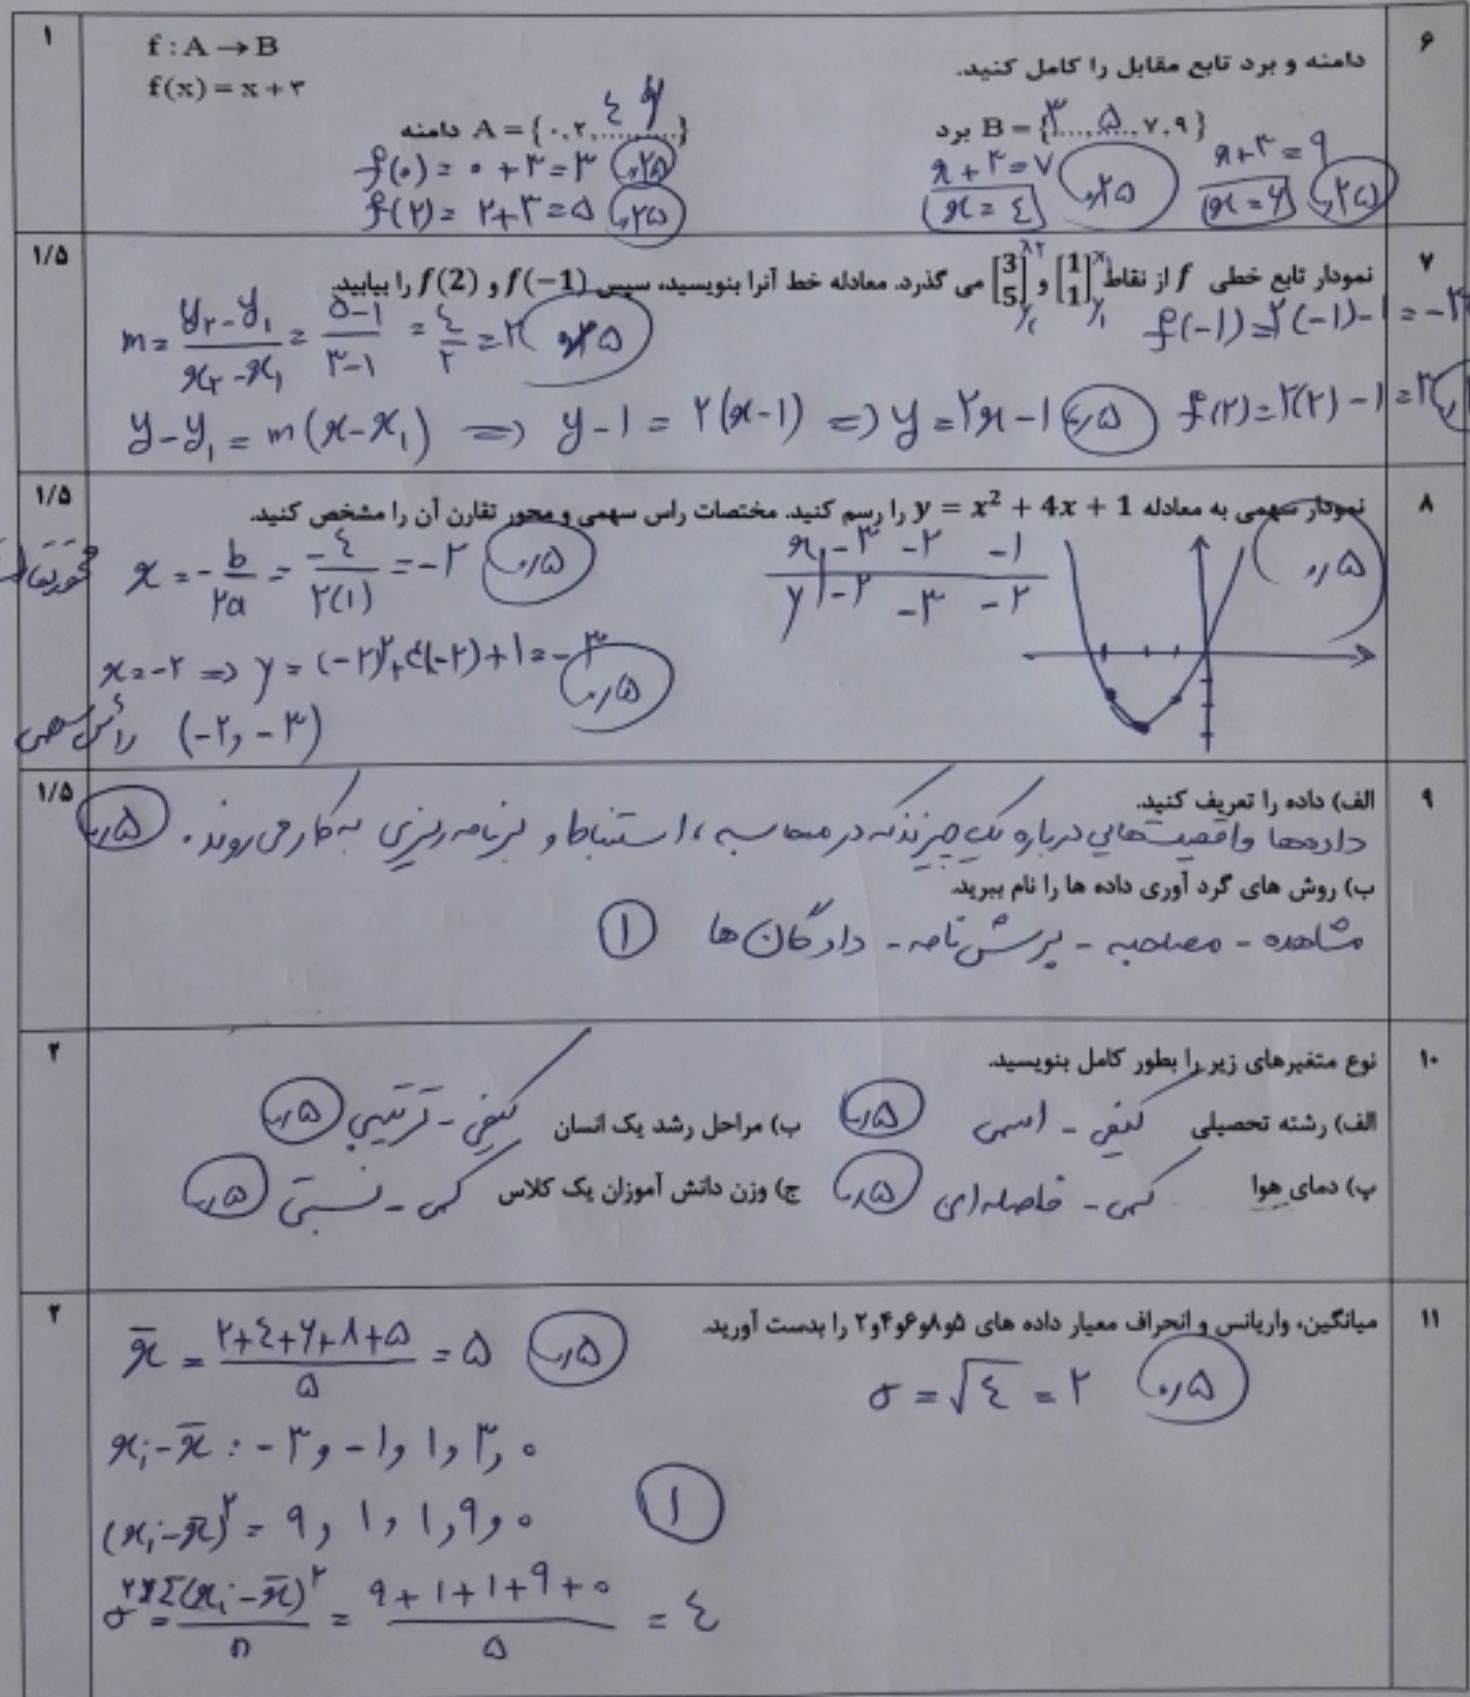 ۶
دامنه و برد تابع مقابل را کامل کنید.
f : A → B
۱
f(x) = x + ۳
برد B = {۳, ۵, ۷, ۹}
دامنه A = {۰, ۲, ٤, ۶}
f(۰) = ۰ + ۳ = ۳ ۰٫۲۵
x + ۳ = ۷ ۰٫۲۵
x + ۳ = ۹
f(۲) = ۲ + ۳ = ۵ ۰٫۲۵
x = ٤
x = ۶ ۰٫۲۵
۷
نمودار تابع خطی f از نقاط [1 1] و [3 5] می گذرد. معادله خط آنرا بنویسید، سپس f(−1) و f(2) را بیابید.
۱/۵
m = (y₂ − y₁)/(x₂ − x₁) = (۵−۱)/(۳−۱) = ٤/۲ = ۲ ۰٫۵
f(−۱) = ۲(−۱) − ۱ = −۳
y − y₁ = m(x − x₁) ⟹ y − ۱ = ۲(x−۱) ⟹ y = ۲x − ۱ ۰٫۵
f(۲) = ۲(۲) − ۱ = ۳
۸
نمودار سهمی به معادله y = x² + 4x + 1 را رسم کنید. مختصات راس سهمی و محور تقارن آن را مشخص کنید.
۱/۵
x −۳ −۲ −۱
y −۲ −۳ −۲
۰٫۵
x = −b/۲a = −٤/۲(۱) = −۲ ۰٫۵
x = −۲ ⟹ y = (−۲)² + ٤(−۲) + ۱ = −۳ ۰٫۵
رأس سهمی (−۲, −۳)
۹
الف) داده را تعریف کنید.
۱/۵
داده‌ها واقعیت‌هایی درباره یک چیزند که در محاسبه، استنباط و برنامه ریزی به کار می روند. ۰٫۵
ب) روش های گرد آوری داده ها را نام ببرید.
مشاهده - مصاحبه - پرسش نامه - دادگان ها ۱
۱۰
نوع متغیرهای زیر را بطور کامل بنویسید.
۲
الف) رشته تحصیلی کیفی - اسمی ۰٫۵ ب) مراحل رشد یک انسان کیفی - ترتیبی ۰٫۵
پ) دمای هوا کمی - فاصله ای ۰٫۵ ج) وزن دانش آموزان یک کلاس کمی - نسبتی ۰٫۵
۱۱
میانگین، واریانس و انحراف معیار داده های ۵و۸و۶و۴و۲ را بدست آورید.
۲
x̄ = (۲+٤+۶+۸+۵)/۵ = ۵ ۰٫۵
σ = √٤ = ۲ ۰٫۵
xᵢ − x̄ : −۳, −۱, ۱, ۳, ۰
(xᵢ − x̄)² = ۹, ۱, ۱, ۹, ۰ ۱
σ² = Σ(xᵢ − x̄)²/n = (۹+۱+۱+۹+۰)/۵ = ٤